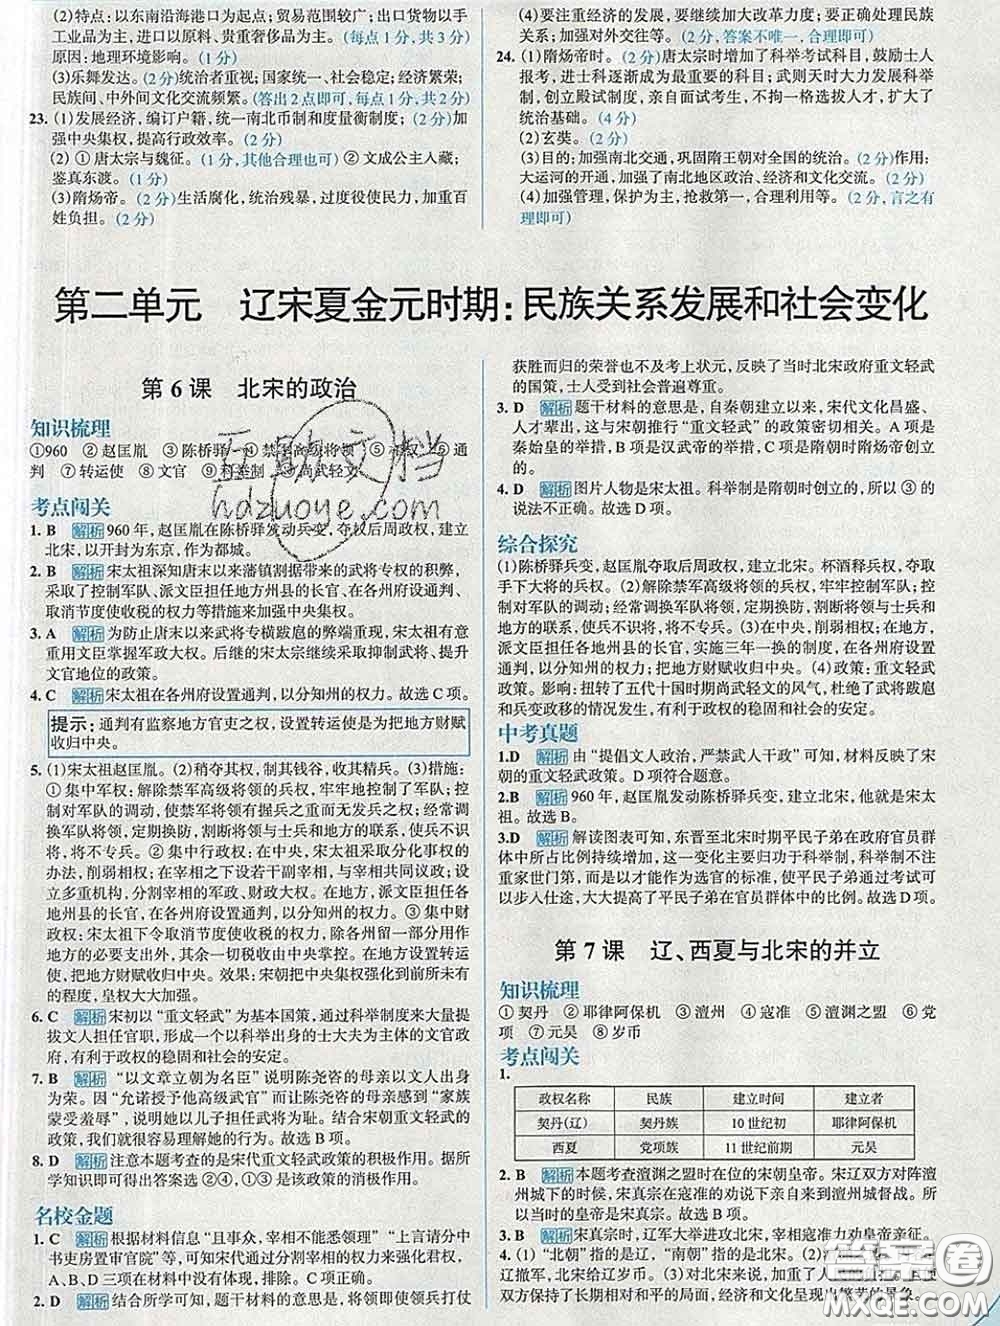 (2)特点:以东南沿海港口为起点;贸易范围较广;出口货物以手
工业品为主,进口以原料、贵重奢侈品为主。(每点1分,共3分)
原因:地理环境影响。(1分)
(3)乐舞发达。(2分)统治者重视;国家统一、社会稳定;经济繁荣;
民族间、中外间文化交流频繁。(答出2点即可,每点1分,共2分)
23. (1)发展经济,编订户籍,统一南北币制和度量衡制度;(2分)加
强中央集权,提高行政效率。(2分)
(2) ①唐太宗与魏征。(1分,其他合理也可) ②文成公主入藏;
鉴真东渡。(1分)
(3)隋炀帝。(2分)生活腐化,统治残暴,过度役使民力,加重百
姓负担。(2分)
(4)要注重经济的发展,要继续加大改革力度;要正确处理民族
关系;加强对外交往等。(2分,答案不唯一,合理即可)
24. (1)隋炀帝时。(2分)唐太宗时增加了科举考试科目,鼓励士人
报考,进士科逐渐成为最重要的科目;武则天时大力发展科举
制,创立殿试制度,亲自面试考生,不拘一格选拔人才,扩大了
统治基础。(4分)
(2)玄奘。(2分)
(3)目的:加强南北交通,巩固隋王朝对全国的统治。(2分)作用:
大运河的开通,加强了南北地区政治、经济和文化交流。(2分)
(4)加强管理,保护为主,抢救第一,合理利用等。(2分,言之有
理即可)
第二单元 辽宋夏金元时期:民族关系发展和社会变化
第6课 北宋的政治
知识梳理
①960 ②赵匡胤 ③陈桥驿 ④禁军高级将领 ⑤ ⑤通
判 ⑦转运使 ⑧文官 ⑨科举制 ⑩尚武轻文
考点闯关
1. B 解析 960年,赵匡胤在陈桥驿发动兵变,夺取后周政权,建立
北宋,以开封为东京,作为都城。
2. B 解析 宋太祖深知唐末以来藩镇割据带来的武将专权的积弊,
采取了控制军队、派文臣担任地方州县的长官、在各州府设通判、
取消节度使收税的权力等措施来加强中央集权。
3. A 解析 为防止唐末以来武将专横跋扈的弊端重现,宋太祖有意
重用文臣掌握军政大权。后继的宋太宗继续采取抑制武将、提升
文官地位的政策。
4. C 解析 宋太祖在各州府设置通判,以分知州的权力。故选C项。
提示:通判有监察地方官吏之权,设置转运使是为把地方财赋
收归中央。
5. (1)宋太祖赵匡胤。(2)稍夺其权,制其钱谷,收其精兵。(3)措施:
①集中军权:解除禁军高级将领的兵权,牢牢地控制了军队;控
制对军队的调动,使禁军将领有握兵之重而无发兵之权;经常调
换军队将领,定期换防,割断将领与士兵和地方的联系,使兵不识
将,将不专兵。②集中行政权:在中央,宋太祖采取分化事权的
办法,削弱相权;在宰相之下设若干副宰相,与宰相共同议政;设
立多重机构,分割宰相的军政、财政大权。在地方,派文臣担任各
地州县的长官,在各州府设置通判,以分知州的权力。③集中财
政权:宋太祖下令取消节度使收税的权力,规定除各州府留一部分用作
地方的必要支出外,其余一切税收由中央掌管,设置转运使,
把地方财赋收归中央。效果:宋朝把中央集权强化到前所未有
的程度,皇权大大加强。
6. C 解析 宋初以“重文轻武”为基本国策,通过科举制度来大量提
拔文人担任官职,形成一个以科举出身的士大夫为主体的文官政
府,有利于政权的稳固和社会的安定。
7. B 解析 “以文章立朝为名臣”说明陈尧咨的母亲以文人出身
为荣。因“允诺授予他高级武官”而让陈尧咨的母亲感到“家族
蒙受羞辱”,说明她以儿子担任武将为耻。结合宋朝重文轻武的
政策,我们很容易理解她的行为。故选B项。
8. D 解析 注意本题考查的是宋代重文轻武政策的积极作用。据所
学知识即可得出答案选②④,①③是该政策的消极作用。
名校金题
1. C 解析 根据材料信息“且事众,宰相不能悉领理”“上言请分中
书吏房置审官院”等,可知宋代通过分化事权来加强君权,
A、B、D三项在材料中没有体现,排除。故选C项。
2. D 解析 结合所学可知,题干材料的意思是,将领即使领兵打仗
获胜而归的荣誉也不及考上状元,反映了当时北宋政府重文轻武
的国策,士人受到社会普遍尊重。
3. D 解析 题干材料的意思是,自秦朝建立以来,宋代文化昌盛、
人才辈出,这与宋朝推行“重文轻武”的政策密切相关。A项是
秦始皇的举措,B项是汉武帝的举措,C项是隋炀帝创立
的。
4. D 解析 图片人物是宋太祖。科举制是隋朝时创立的,所以③的
说法不正确。故选D项。
综合探究
(1)陈桥驿兵变,赵匡胤夺取后周政权,建立北宋。杯酒释兵权,夺取
手下大将的兵权。(2)解除禁军高级将领的兵权,牢牢控制军队;控
制对军队的调动;经常调换将领,定期换防,割断将领与士兵和
地方的联系,使兵不识将,将不专兵。(3)在中央,削弱相权;在地方,
派文臣担任各地州县的长官,实施三年一换的制度,在各州府设置
通判,以分知州的权力;把地方财赋收归中央。(4)政策:重文轻武
政策。影响:扭转了五代十国时期尚武轻文的风气,杜绝了武将跋扈
和兵变政移的情况发生,有利于政权的稳固和社会的安定。
中考真题
1.D 解析 由“提倡文人政治,严禁武人干政”可知,材料反映了宋
朝的重文轻武政策。D项符合题意。
2.B 解析 960年,赵匡胤发动陈桥驿兵变,建立北宋,他就是宋太
祖。故选B。
3.D 解析 解读图表可知,东晋至北宋时期平民子弟在政府官员群
体中所占比例持续增加,这一变化主要归功于科举制,科举制不注
重家世门第,而是以才能作为选官的标准,使平民子弟通过考试可
以步入仕途,大大提高了平民子弟在官员群体中的比例。故选D项。
第7课 辽、西夏与北宋的并立
知识梳理
①契丹 ②耶律阿保机 ③澶州 ④寇准 ⑤澶渊之盟 ⑥党
项 ⑦元昊 ⑧岁币
考点闯关
1.
政权名称 民族 建立时间 建立者
契丹(辽) 契丹族 10世纪初 耶律阿保机
西夏 党项族 11世纪前期 元昊
2. B 解析 本题考查澶渊之盟时在位的宋朝皇帝。宋辽双方对阵澶
州城下的时候,宋真宗在寇准的劝说下,亲自来到澶州城督战。所
以,当时的皇帝是宋真宗。故选B项。
3. B 解析 宋真宗时,辽军大举进攻北宋,宰相寇准力劝皇帝亲征。
4. (1)“北朝”指的是辽,“南朝”指的是北宋。(2)
辽撤军,北宋给辽岁币。(3)
双方保持了长期相对和平的局面,经济和文化呈现出繁荣的景象。
hdzuoye.com
答案圈
MXQE.COM